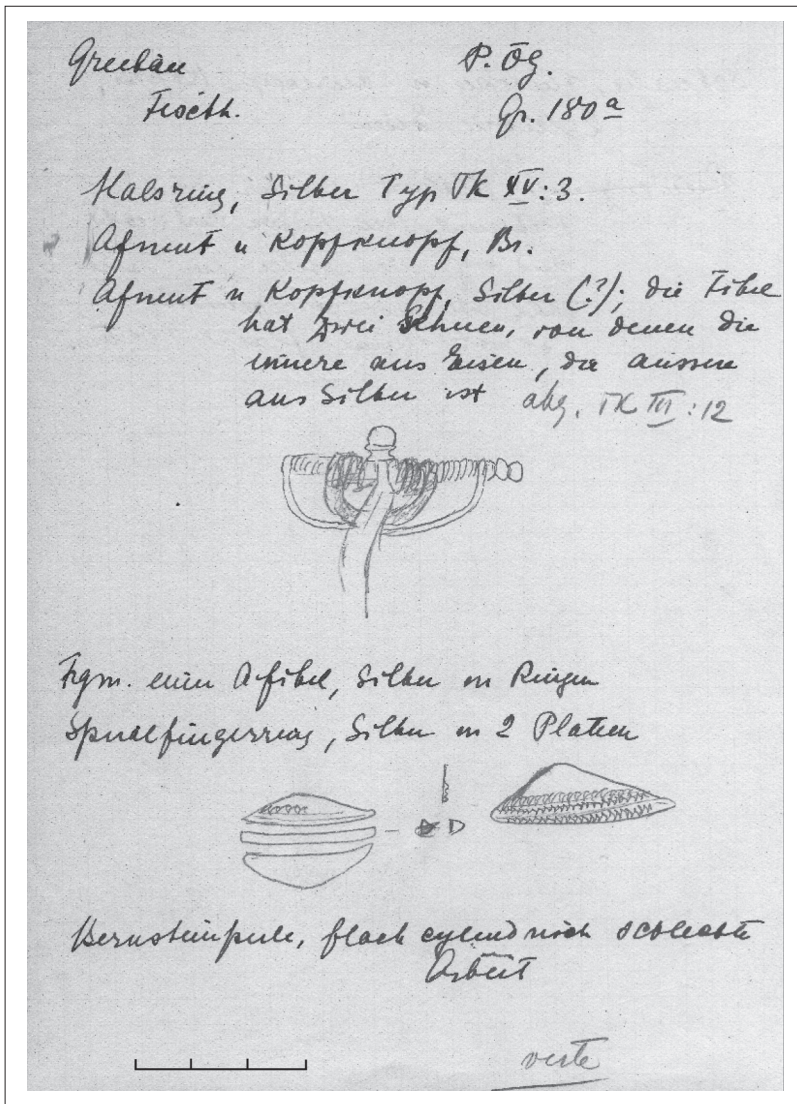 Grebau P. Ög.
Fischh. Gr. 180a
Halsring, Silber Typ TK XV:3.
Afmut u Kopfknopf, Br.
Afmut u Kopfknopf, Silber (?); die Fibel
hat zwei Sehnen, von denen die
innere aus Eisen, die äussere
aus Silber ist abg. TK III:12
Frgm. einer Afibel, Silber m Ringen
Spiralfingerring, Silber m 2 Platten
D
Bernsteinperle, flach cylindrisch schlechte
Arbeit